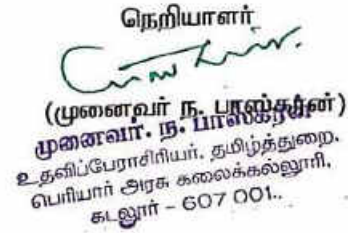 நெறியாளர்
(முனைவர் ந. பாஸ்கரன்)
முனைவர். ந. பாஸ்கரன்
உதவிப்பேராசிரியர், தமிழ்த்துறை,
பெரியார் அரசு கலைக்கல்லூரி,
கடலூர் - 607 001..